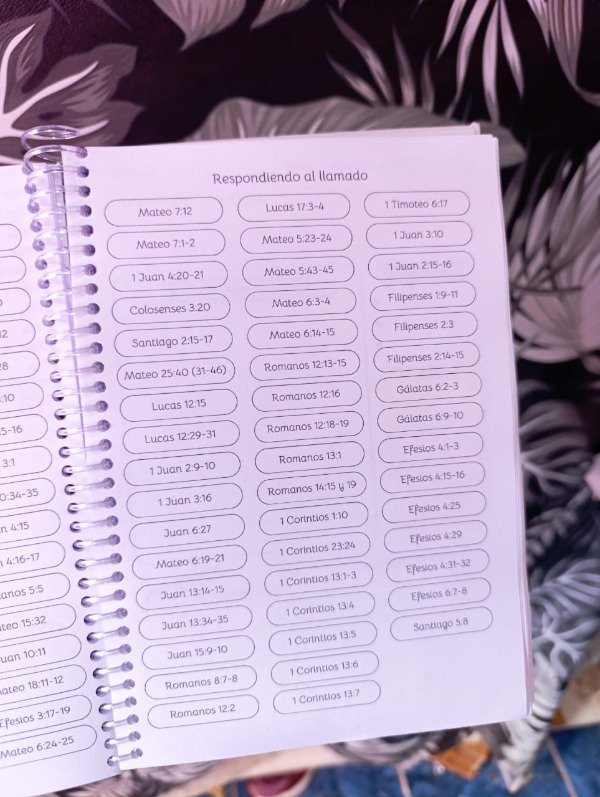 12
28
:10
15-16
3:1
0:34-35
n 4:15
n 4:16-17
anos 5:5
teo 15:32
uan 10:11
ateo 18:11-12
Efesios 3:17-19
Mateo 6:24-25
Respondiendo al llamado
Mateo 7:12
Mateo 7:1-2
1 Juan 4:20-21
Colosenses 3:20
Santiago 2:15-17
Mateo 25:40 (31-46)
Lucas 12:15
Lucas 12:29-31
1 Juan 2:9-10
1 Juan 3:16
Juan 6:27
Mateo 6:19-21
Juan 13:14-15
Juan 13:34-35
Juan 15:9-10
Romanos 8:7-8
Romanos 12:2
Lucas 17:3-4
Mateo 5:23-24
Mateo 5:43-45
Mateo 6:3-4
Mateo 6:14-15
Romanos 12:13-15
Romanos 12:16
Romanos 12:18-19
Romanos 13:1
Romanos 14:15 y 19
1 Corintios 1:10
1 Corintios 23:24
1 Corintios 13:1-3
1 Corintios 13:4
1 Corintios 13:5
1 Corintios 13:6
1 Corintios 13:7
1 Timoteo 6:17
1 Juan 3:10
1 Juan 2:15-16
Filipenses 1:9-11
Filipenses 2:3
Filipenses 2:14-15
Gálatas 6:2-3
Gálatas 6:9-10
Efesios 4:1-3
Efesios 4:15-16
Efesios 4:25
Efesios 4:29
Efesios 4:31-32
Efesios 6:7-8
Santiago 5:8